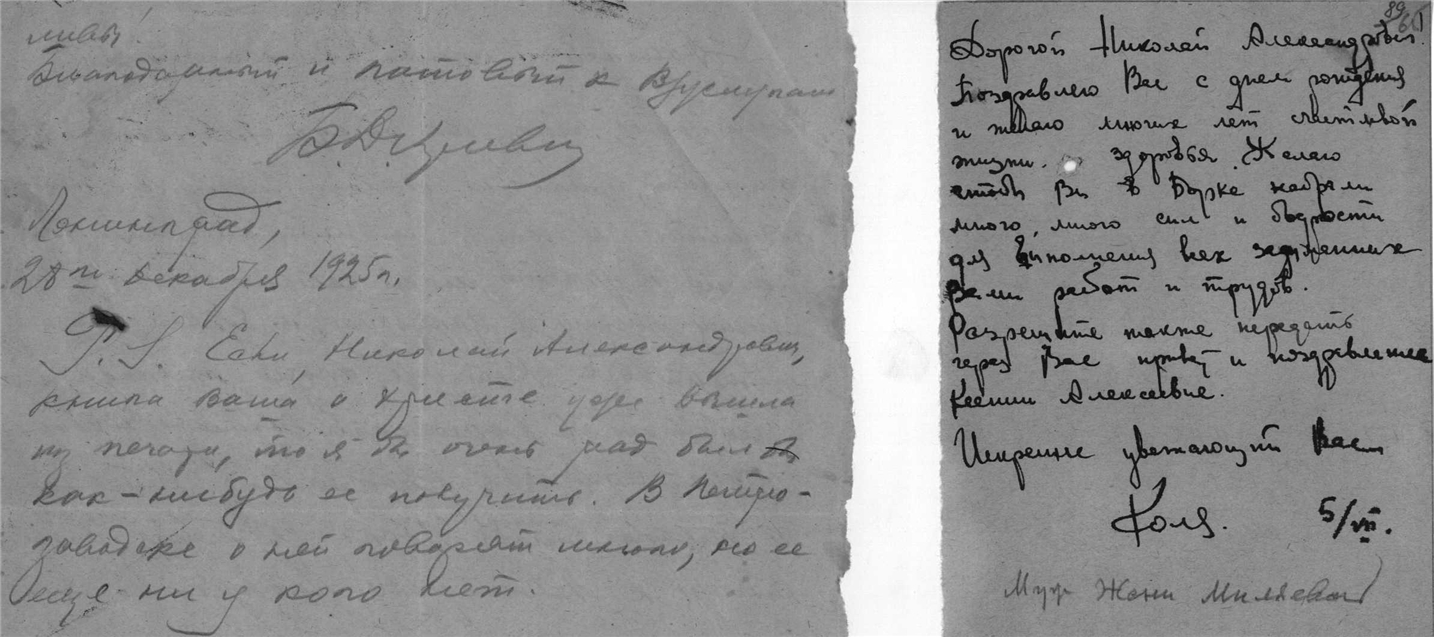 Благодарный и готовый к Вуслугам
Ленинград,
28го декабря 1925г.
P.S. Если, Николай Александрович,
книга Ваша о Христе уже вышла
из печати, то я бы очень рад был
как-нибудь ее получить. В Петро-
заводске о ней говорят много, но ее
еще ни у кого нет.
89
Дорогой Николай Александрович.
Поздравляю Вас с днем рождения
и желаю многих лет счастливой
жизни. здоровья. Желаю
чтобы Вы в Борке набрали
много, много сил и бодрости
для выполнения всех задуманных
Вами работ и трудов.
Разрешите также передать
через Вас привет и поздравление
Ксении Алексеевне.
Искренне уважающий Вас
Коля. 5/VII.
Муж Жени